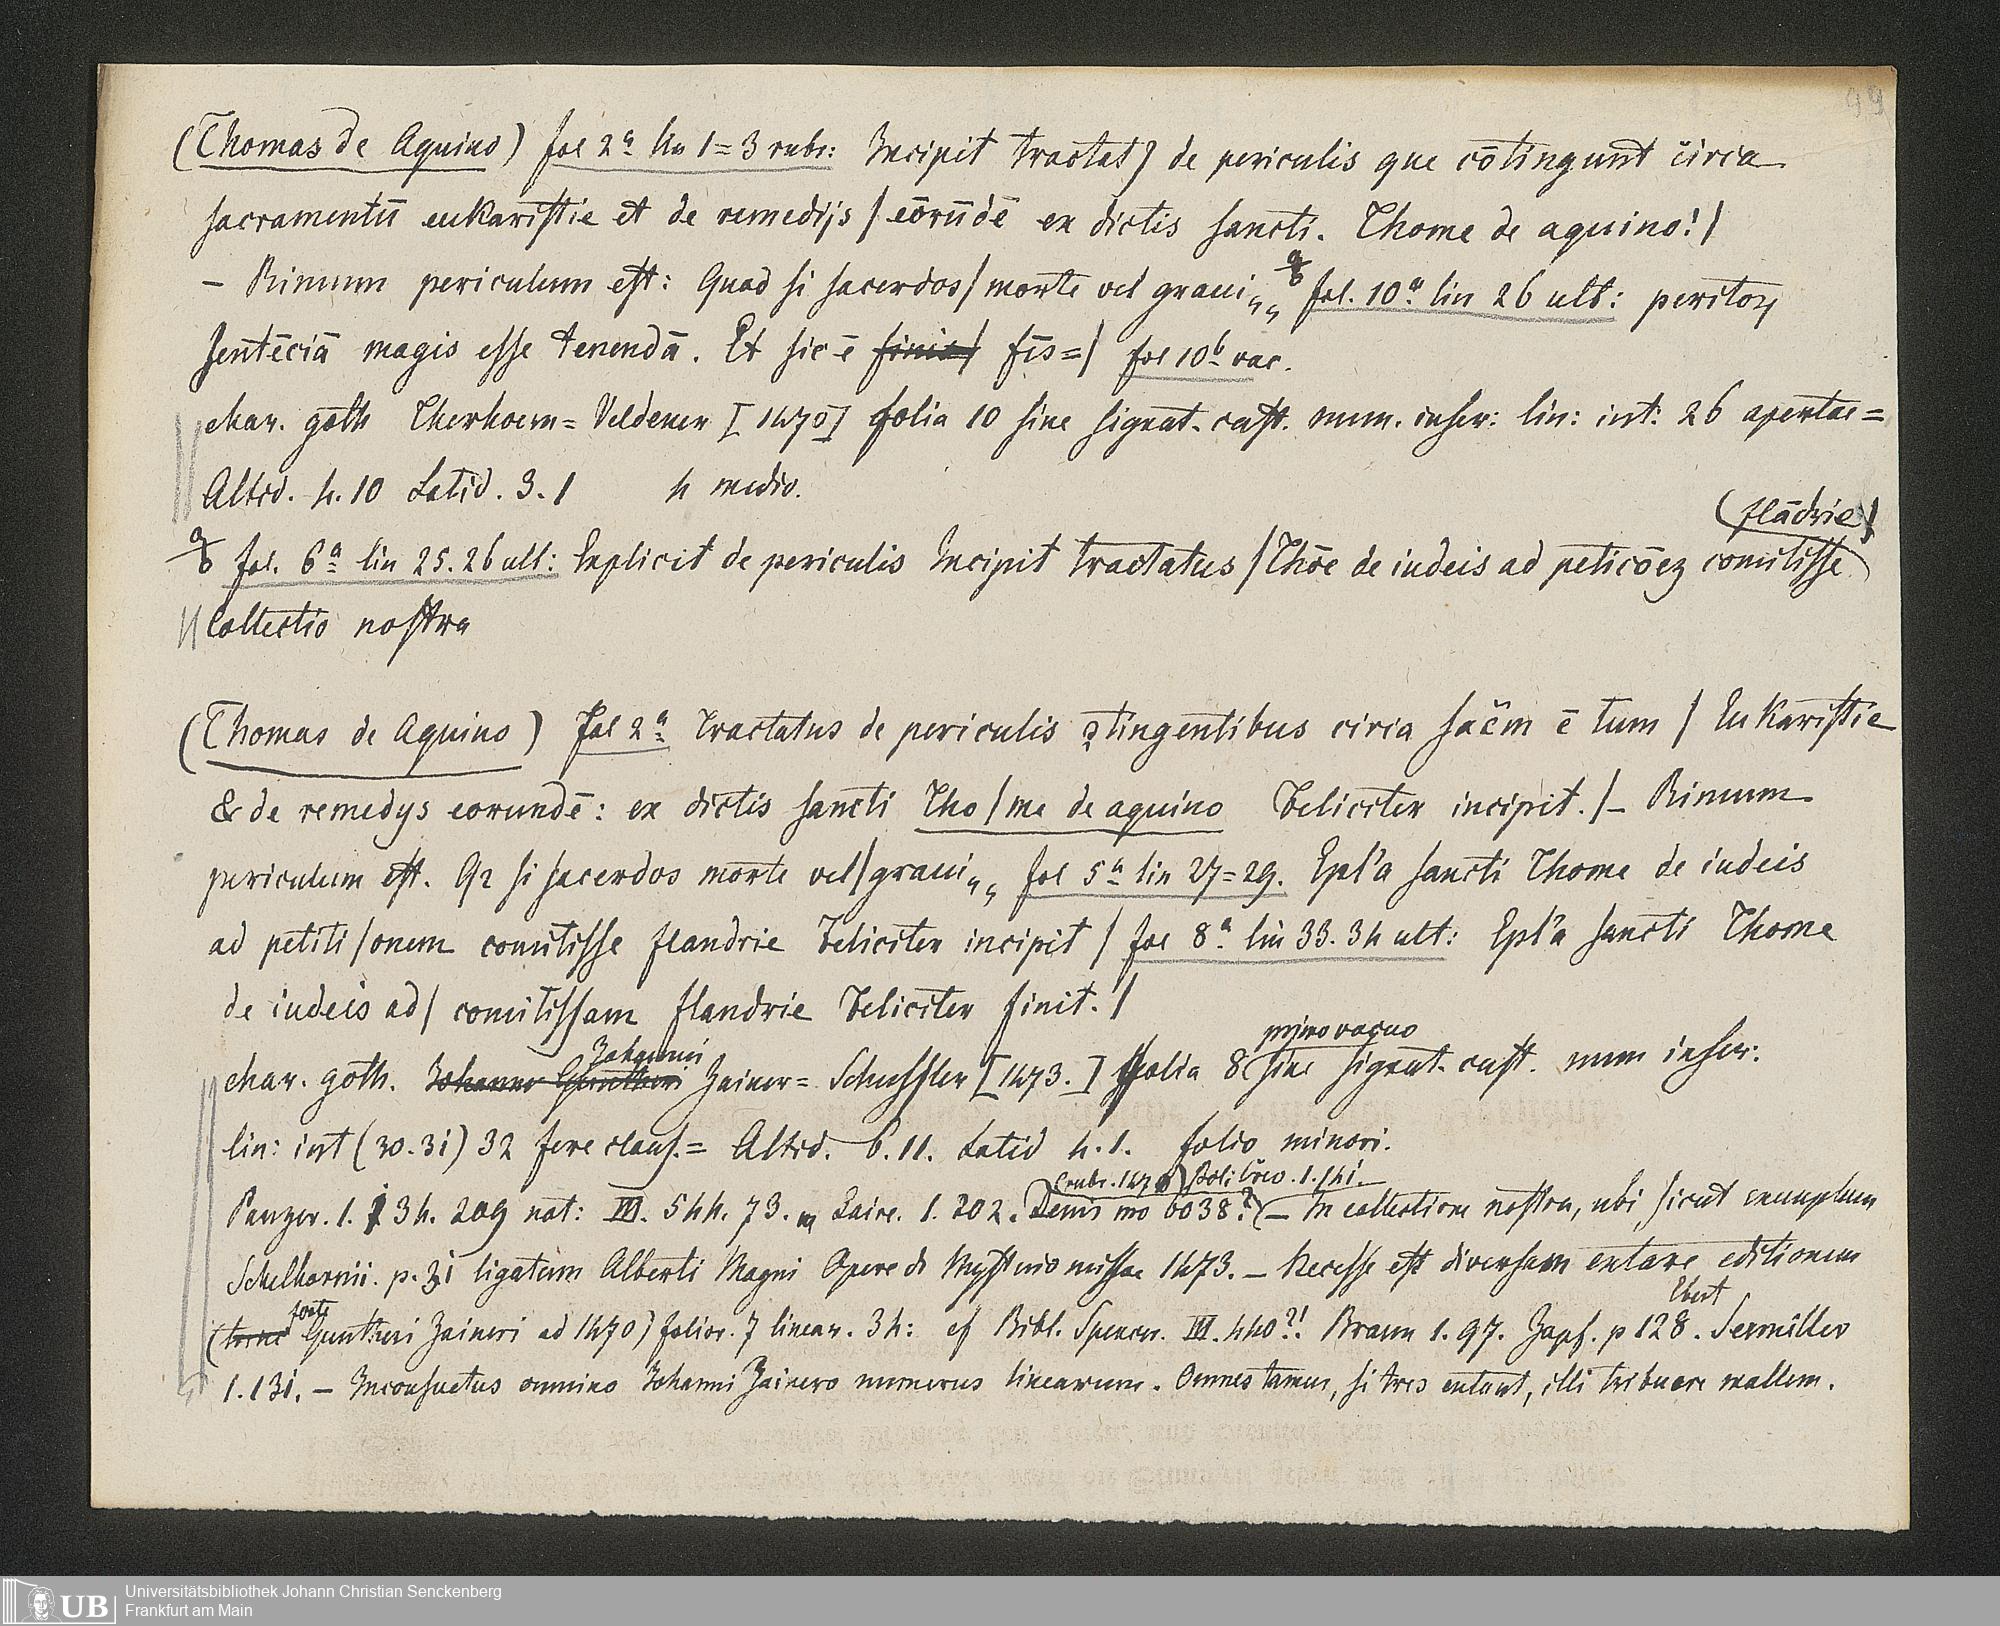 99
(Thomas de Aquino) fol 2a lin 1=3 rubr: Incipit tractat de periculis que cōtingunt circa
sacramentū eukaristie et de remedijs / eorūdē ex dictis sancti. Thome de aquino! /
— Rimum periculum est: Quod si sacerdos / morte vel graui„ fol. 10a lin 26 ult: peritoꝝ
sentēciā magis esse tenendā. Et sic ē finis/ fīs=/ fol 10b vac.
char. goth Therhoern=Veldener [1470] folia 10 sine signat. cust. num. inser: lin: int: 26 apertae=
Altid. 4.10 Latid. 3.1 4 medio.
(flādrie/
fol. 6a lin 25.26 ult: Explicit de periculis Incipit tractatus / Thōe de iudeis ad peticōez comitisse
Collectio nostra
(Thomas de Aquino) Fol 2a Tractatus de periculis ꝯtingentibus circa sac̄m ē tum / Eukaristie
& de remedys eorundē: ex dictis sancti Tho / me de aquino feliciter incipit. / — Rimum
periculum est. Qz si sacerdos morte vel / graui„ fol 5a lin 27=29. Epl'a sancti Thome de iudeis
ad petiti / onem comitisse flandrie feliciter incipit / fol 8a lin 33.34 ult: Epl'a sancti Thome
de iudeis ad / comitissam flandrie feliciter finit. /
Johanni primo vacuo
char. goth. Johanne Guntheri Zainer=Schussler [1473.] folia 8 sine signat. cust. num inser:
lin: int (30.31) 32 fere claus.= Altid. 6.11. Latid 4.1. folio minori.
(rubr. 1470)
Panzer. 1. 134. 209 not: III. 544. 73. Laire. 1. 202. Denis no 6038? — In collectione nostra, ubi, sicut exemplum
Schelhornii. p. 31 ligatum Alberti Magni Opere de Mysterio missae 1473. — Necesse est diversam extare editionem
forte Ebert
Guntheri Zaineri ad 1470) folior. 7 linear. 34: cf Bibl. Spencer. III. 440?! Braun 1. 97. Zapf. p 128. Sermiller
1.131. — Inconsuetus omnino Johanni Zainero numerus linearum. Omnes tamen, si tres extant, illi tribuere mallem.
UB
Universitätsbibliothek Johann Christian Senckenberg
Frankfurt am Main